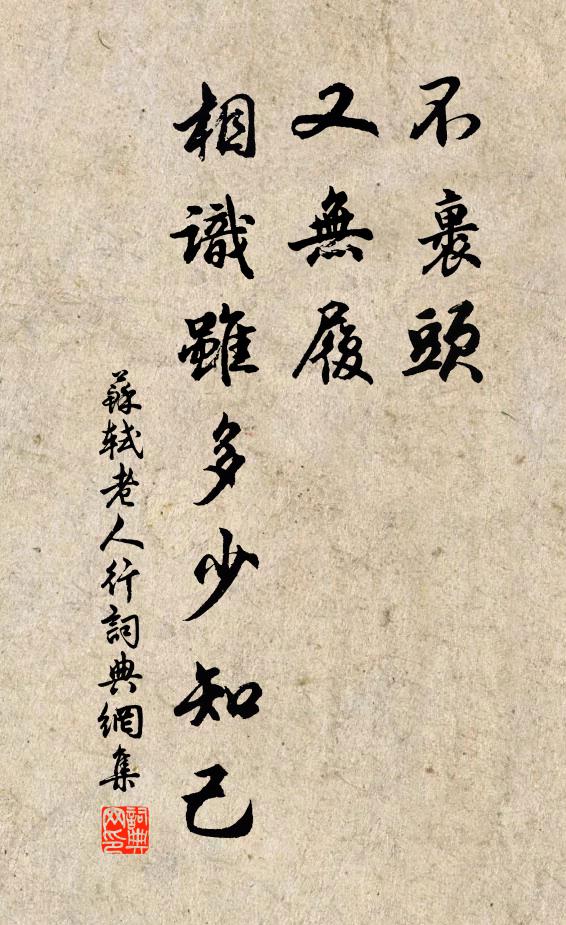 不裹頭
又無履
相識雖多少知己
蘇軾老人行詞典網集
詞典
网印